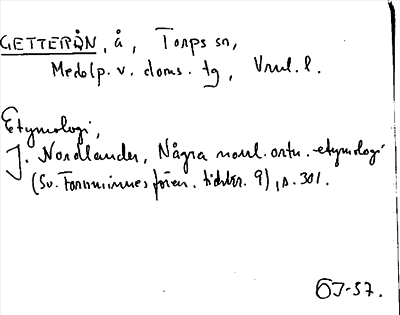 GETTERÅN, å, Torps sn,
Medelp. v. doms. tg,
Etymologi,
J. Nordlander, Några norrl. ortn. etymologi
(Sv. Fornminnesfören. tidskr. 9), s. 301.
ÖJ-57.